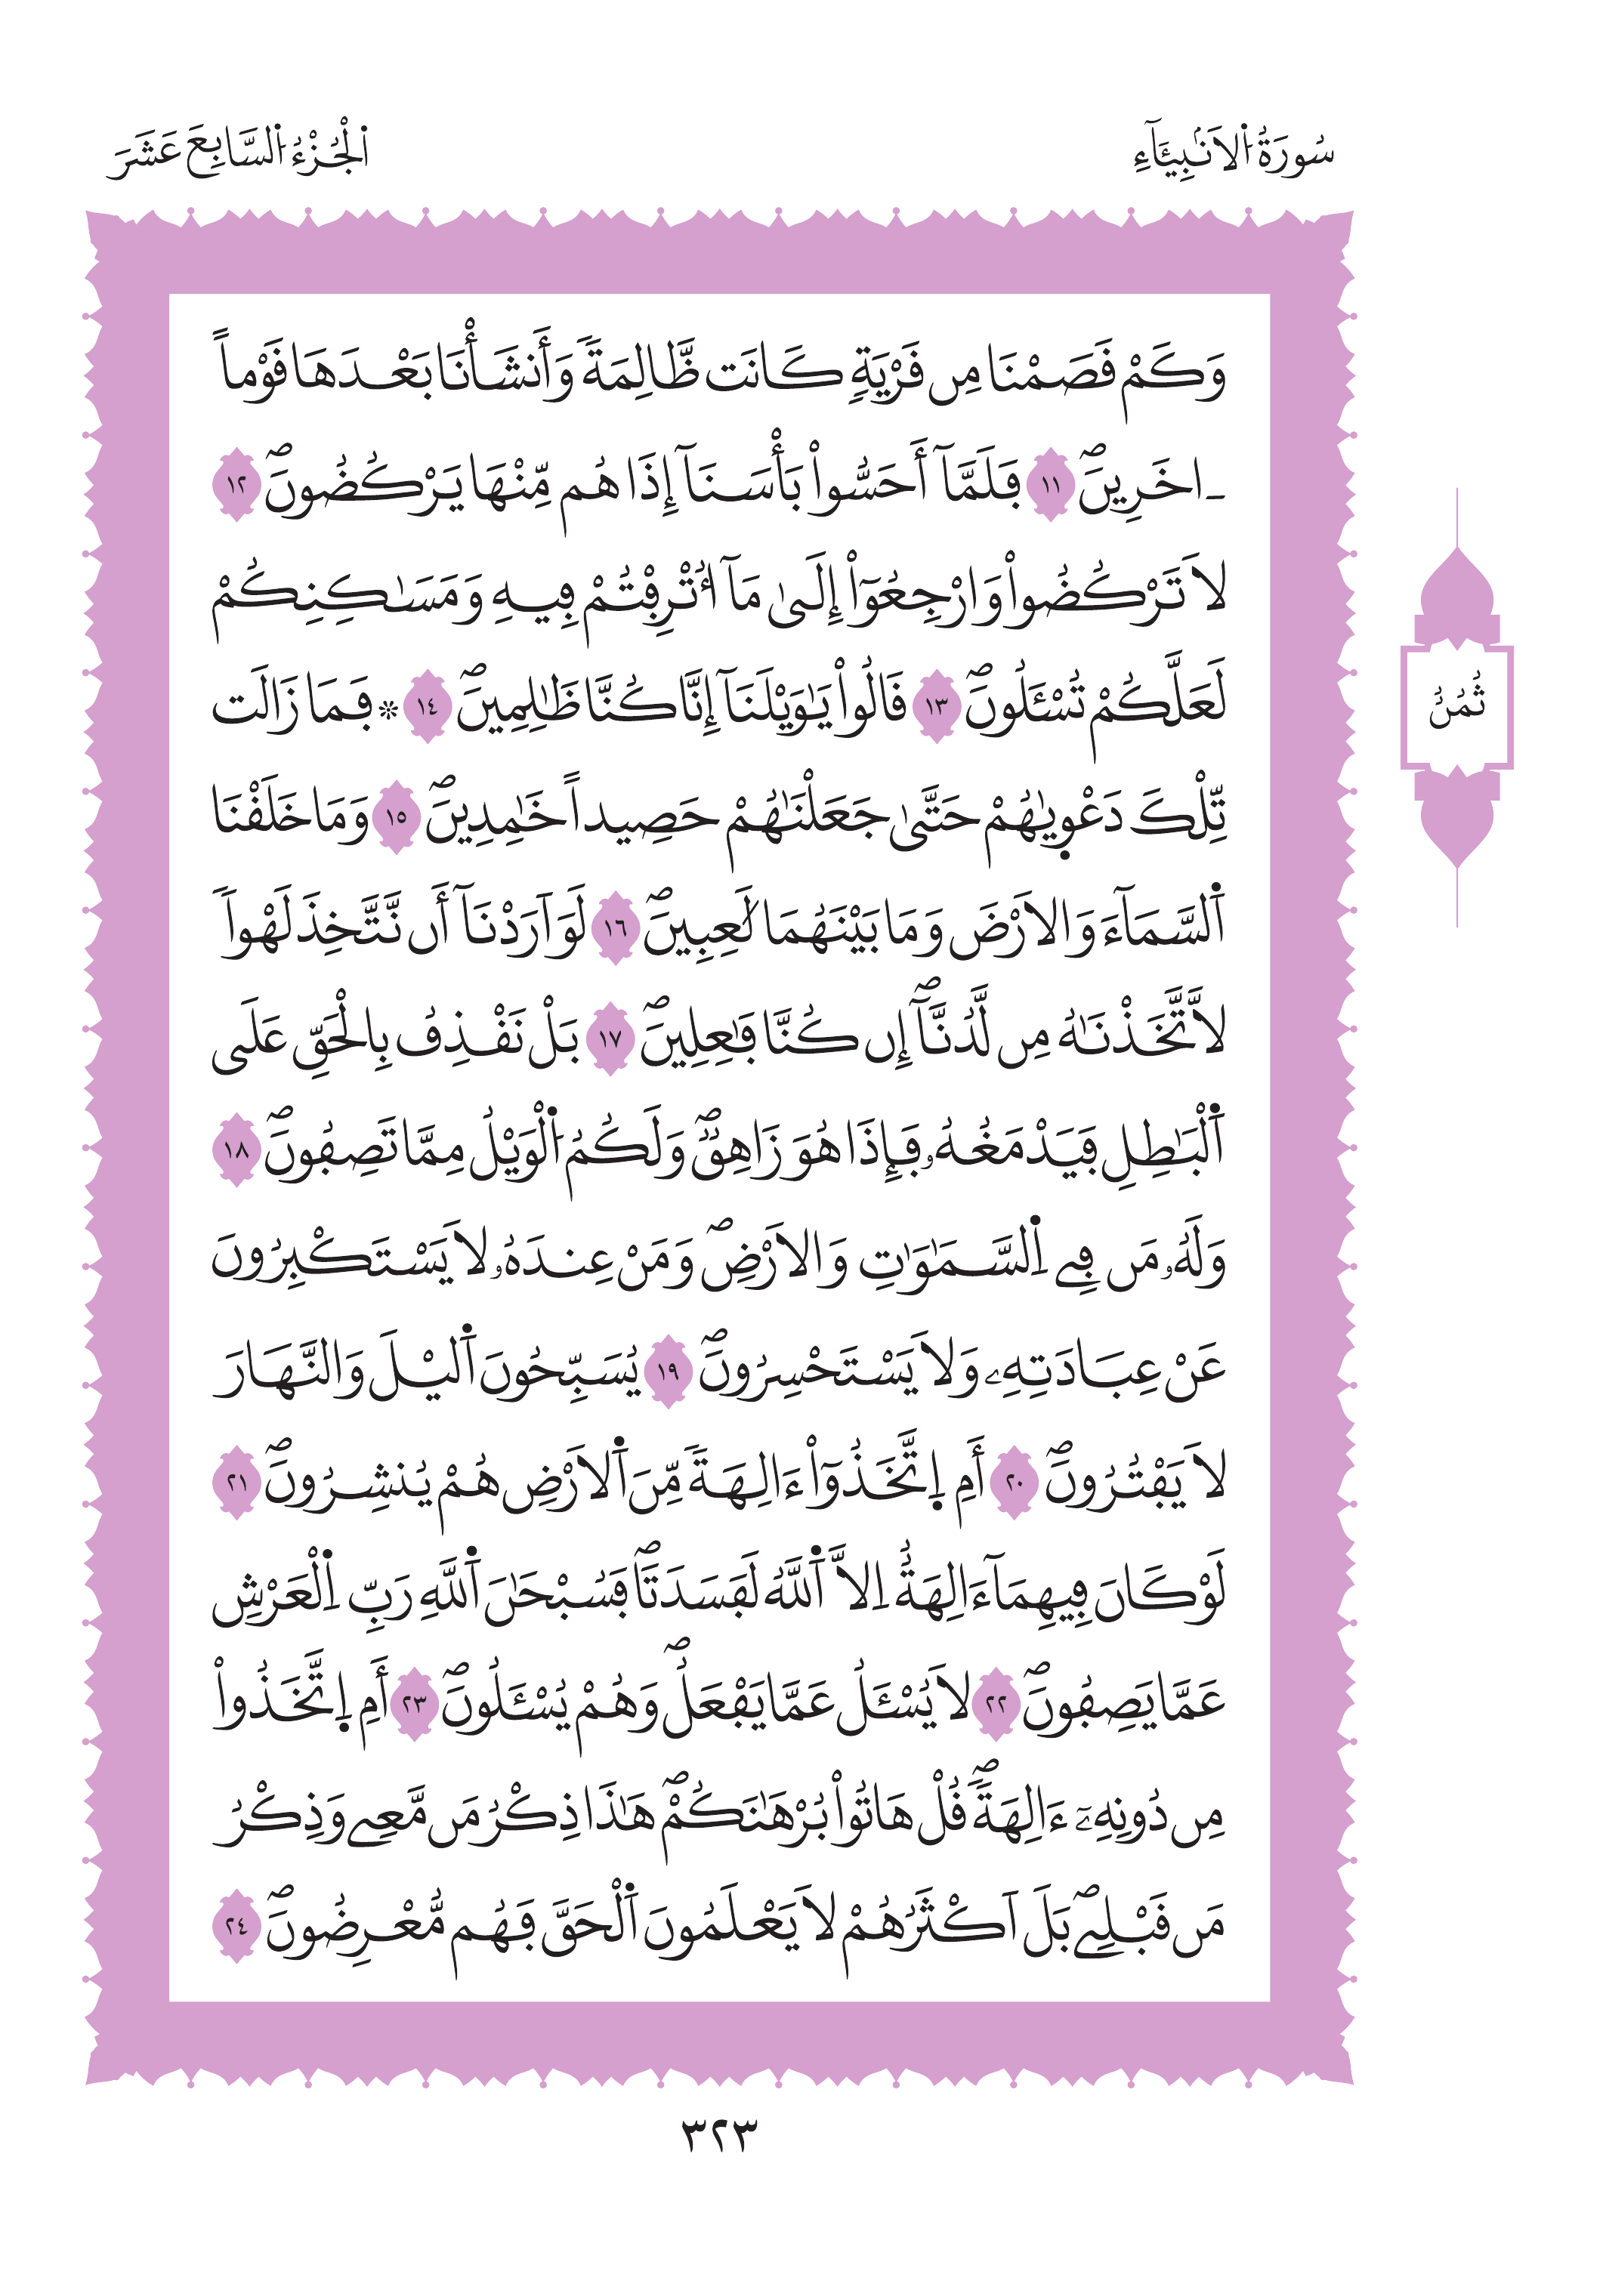 سُورَةُ اُ۬لَانۢبِيَآءِ
اَ۬لْجُزْءُ اُ۬لسَّابِعَ عَشَرَ
وَكَمْ قَصَمْنَا مِن قَرْيَةٖ كَانَت ظَّالِمَةٗ وَأَنشَأْنَا بَعْدَهَا قَوْماً
ـ اخَرِينَۖ ١١ فَلَمَّآ أَحَسُّواْ بَأْسَنَآ إِذَا هُم مِّنْهَا يَرْكُضُونَۖ ١٢
لَا تَرْكُضُواْ وَارْجِعُوٓاْ إِلَىٰ مَآ أُتْرِفْتُمْ فِيهِ وَمَسَٰكِنِكُمْ
لَعَلَّكُمْ تُسْـَٔلُونَۖ ١٣ قَالُواْ يَٰوَيْلَنَآ إِنَّا كُنَّا ظَٰلِمِينَۖ ١٤ ۞ فَمَا زَالَت
تِّلْكَ دَعْو۪يٰهُمْ حَتَّىٰ جَعَلْنَٰهُمْ حَصِيداً خَٰمِدِينَۖ ١٥ وَمَا خَلَقْنَا
اَ۬لسَّمَآءَ وَالَارْضَ وَمَا بَيْنَهُمَا لَٰعِبِينَۖ ١٦ لَوَ اَرَدْنَآ أَن نَّتَّخِذَ لَهْواٗ
لَّاتَّخَذْنَٰهُ مِن لَّدُنَّآۖ إِن كُنَّا فَٰعِلِينَۖ ١٧ بَلْ نَقْذِفُ بِالْحَقِّ عَلَى
اَ۬لْبَٰطِلِ فَيَدْمَغُهُۥ فَإِذَا هُوَ زَاهِقٞۖ وَلَكُمُ اُ۬لْوَيْلُ مِمَّا تَصِفُونَۖ ١٨
وَلَهُۥ مَن فِے اِ۬لسَّمَٰوَٰتِ وَالَارْضِۖ وَمَنْ عِندَهُۥ لَا يَسْتَكْبِرُونَ
عَنْ عِبَادَتِهِۦ وَلَا يَسْتَحْسِرُونَۖ ١٩ يُسَبِّحُونَ اَ۬ليْلَ وَالنَّهَارَ
لَا يَفْتُرُونَۖ ٢٠ أَمِ اِ۪تَّخَذُوٓاْ ءَالِهَةٗ مِّنَ اَ۬لَارْضِ هُمْ يُنشِرُونَۖ ٢١
لَوْ كَانَ فِيهِمَآ ءَالِهَةٌ اِلَّا اَ۬للَّهُ لَفَسَدَتَاۖ فَسُبْحَٰنَ اَ۬للَّهِ رَبِّ اِ۬لْعَرْشِ
عَمَّا يَصِفُونَۖ ٢٢ لَا يُسْـَٔلُ عَمَّا يَفْعَلُۖ وَهُمْ يُسْـَٔلُونَۖ ٢٣ أَمِ اِ۪تَّخَذُواْ
مِن دُونِهِۦٓ ءَالِهَةٗۖ قُلْ هَاتُواْ بُرْهَٰنَكُمْۖ هَٰذَا ذِكْرُ مَن مَّعِے وَذِكْرُ
مَن قَبْلِےۖ بَلَ اَكْثَرُهُمْ لَا يَعْلَمُونَ اَ۬لْحَقَّ فَهُم مُّعْرِضُونَۖ ٢٤
ثُمُنُ
٣٢٣